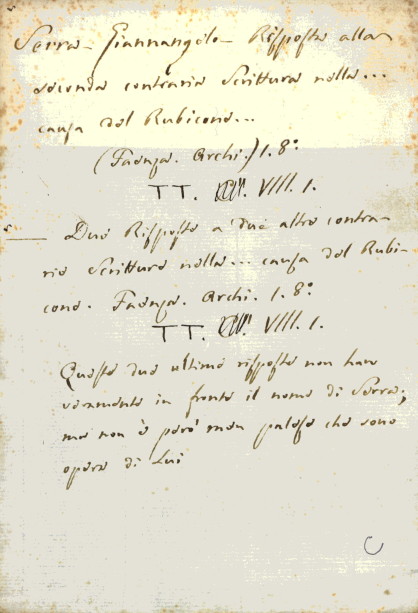 Serra Giannangelo Risposta alla
seconda contraria Scrittura nella...
causa del Rubicone...
(Faenza. Archi.) 1. 8º
TT. VIII. 1.
Due Risposte a due altre contra-
rie Scritture nella... causa del Rubi-
cone. Faenza. Archi. 1. 8º
TT. VIII. 1.
Queste due ultime risposte non han
veramente in fronte il nome di Serra;
ma non è però men palese che sono
opera di Lui